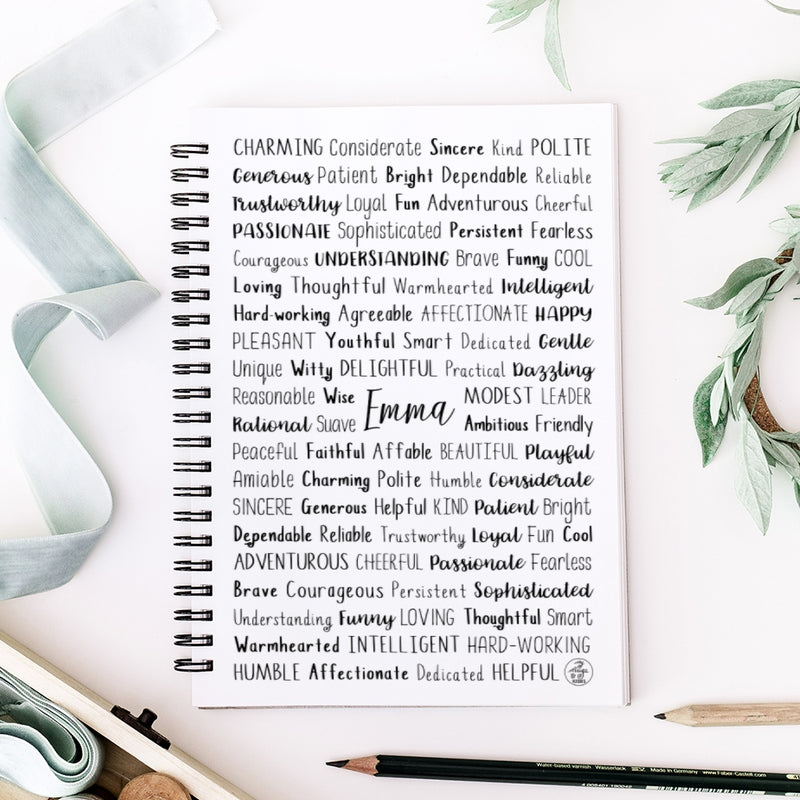 CHARMING Considerate Sincere Kind POLITE
Generous Patient Bright Dependable Reliable
Trustworthy Loyal Fun Adventurous Cheerful
PASSIONATE Sophisticated Persistent Fearless
Courageous UNDERSTANDING Brave Funny COOL
Loving Thoughtful Warmhearted Intelligent
Hard-working Agreeable AFFECTIONATE HAPPY
PLEASANT Youthful Smart Dedicated Gentle
Unique Witty DELIGHTFUL Practical Dazzling
Reasonable Wise MODEST LEADER
Emma
Rational Suave Ambitious Friendly
Peaceful Faithful Affable BEAUTIFUL Playful
Amiable Charming Polite Humble Considerate
SINCERE Generous Helpful KIND Patient Bright
Dependable Reliable Trustworthy Loyal Fun Cool
ADVENTUROUS CHEERFUL Passionate Fearless
Brave Courageous Persistent Sophisticated
Understanding Funny LOVING Thoughtful Smart
Warmhearted INTELLIGENT HARD-WORKING
HUMBLE Affectionate Dedicated HELPFUL
Water-based varnish Wasserlack Made in Germany www.Faber-Castell.com